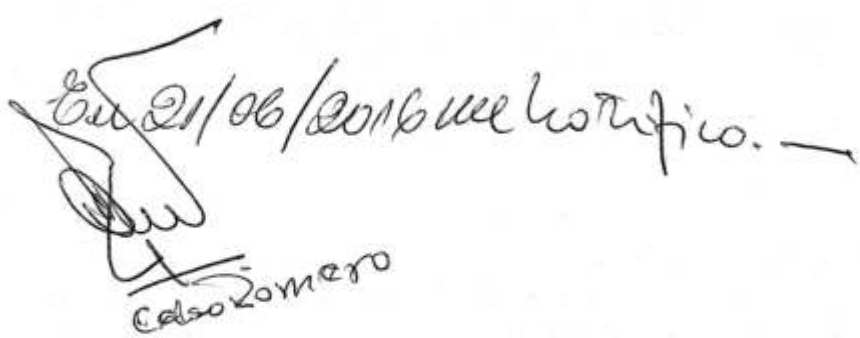 En 21/06/2016 me notifico. —
Celso Romero